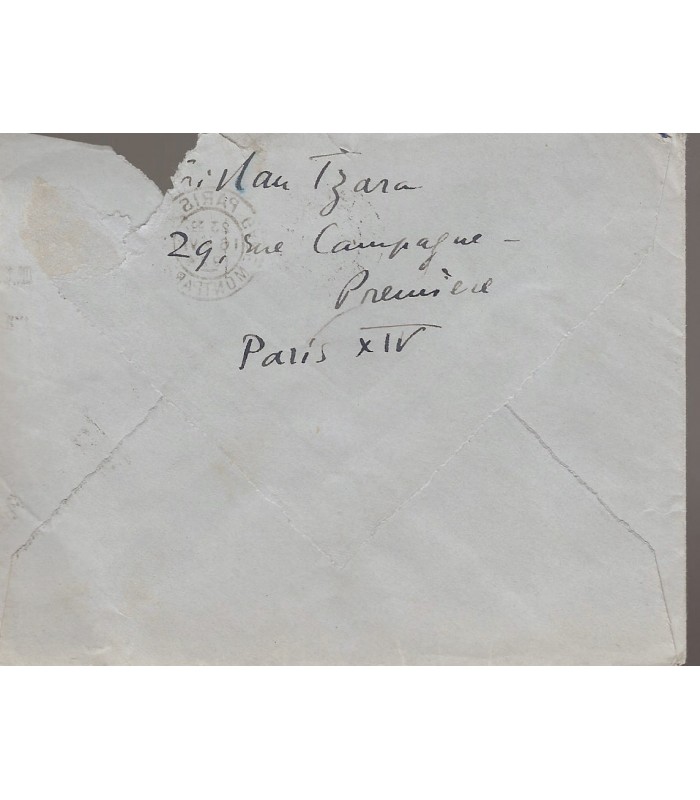 ristan Tzara
29, rue Campagne-
Première
Paris XIV
PARIS